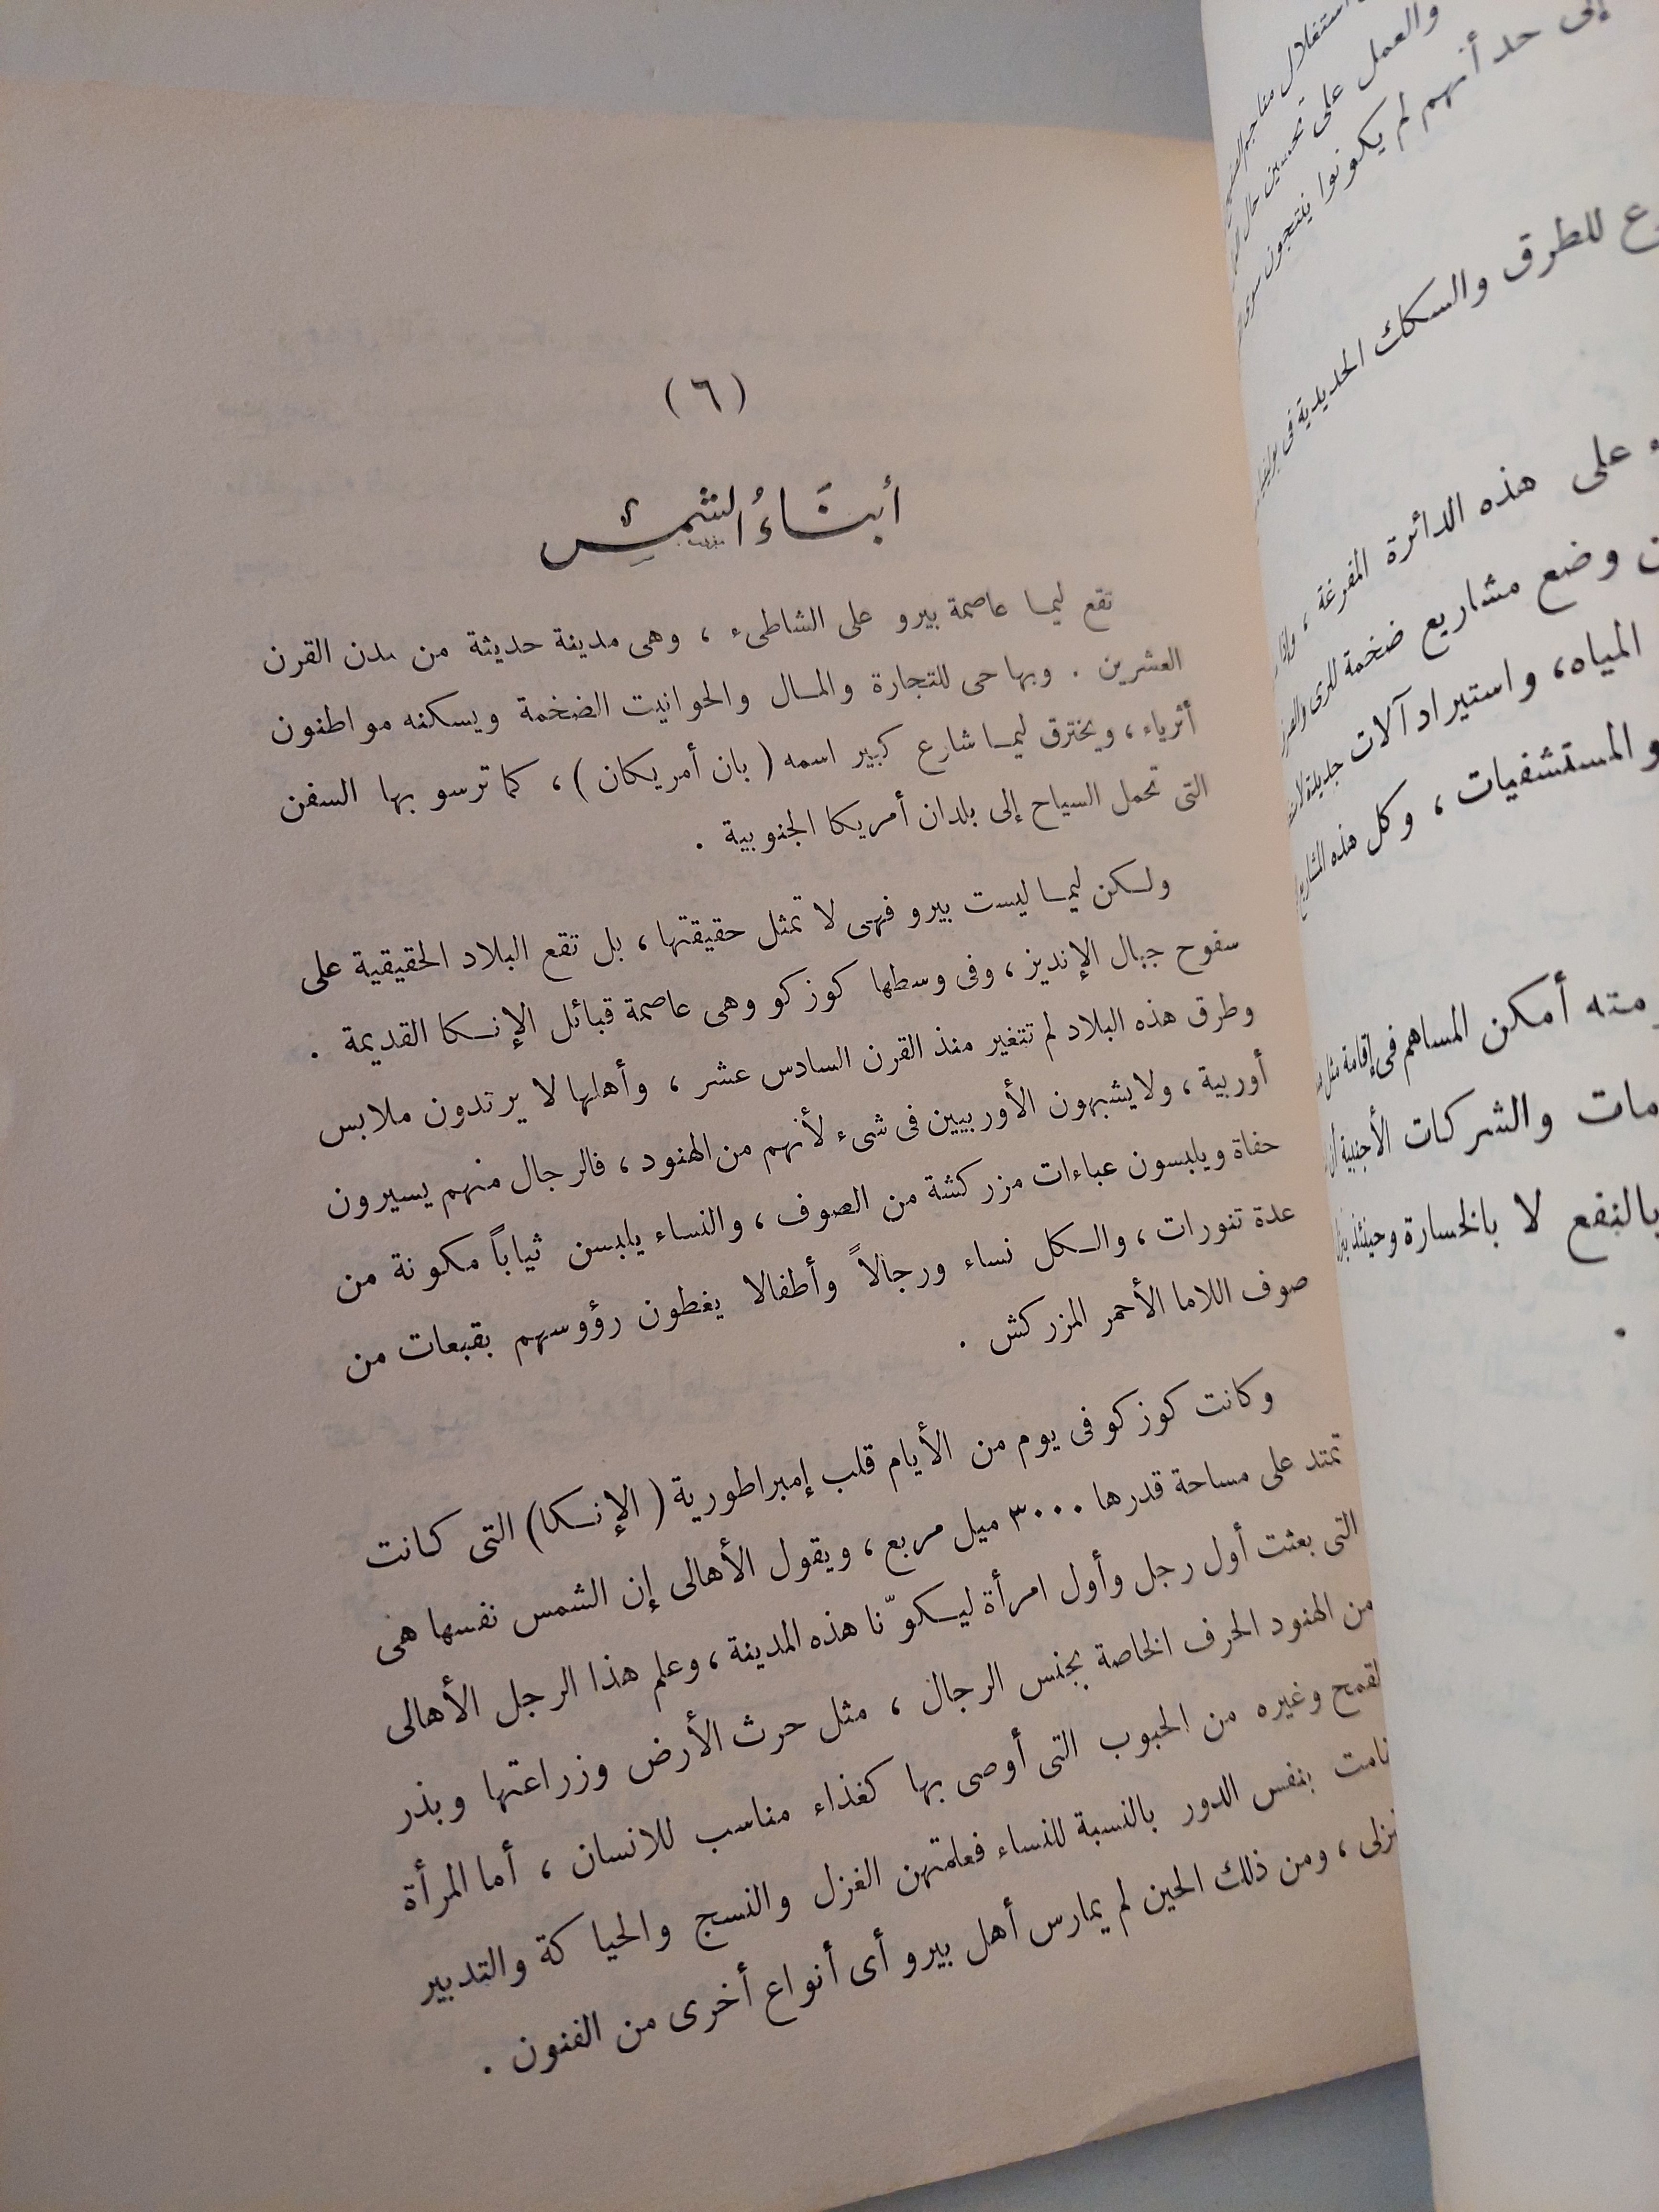 (٦)
أبنَاءُ الشمس
تقع ليما عاصمة بيرو على الشاطىء ، وهى مدينة حديثة من مدن القرن
العشرين . وبها حى للتجارة والمال والحوانيت الضخمة ويسكنه مواطنون
أثرياء ، ويخترق ليما شارع كبير اسمه ( بان أمريكان ) ، كما ترسو بها السفن
التى تحمل السياح إلى بلدان أمريكا الجنوبية .
ولكن ليما ليست بيرو فهى لا تمثل حقيقتها ، بل تقع البلاد الحقيقية على
سفوح جبال الإنديز ، وفى وسطها كوزكو وهى عاصمة قبائل الإنكا القديمة .
وطرق هذه البلاد لم تتغير منذ القرن السادس عشر ، وأهلها لا يرتدون ملابس
أوربية ، ولا يشبهون الأوربيين فى شىء لأنهم من الهنود ، فالرجال منهم يسيرون
حفاة ويلبسون عباءات مزركشة من الصوف ، والنساء يلبسن ثياباً مكونة من
عدة تنورات ، والكل نساء ورجالاً وأطفالا يغطون رؤوسهم بقبعات من
صوف اللاما الأحمر المزركش .
وكانت كوزكو فى يوم من الأيام قلب إمبراطورية ( الإنكا ) التى كانت
تمتد على مساحة قدرها ٣٠٠٠ ميل مربع ، ويقول الأهالى إن الشمس نفسها هى
التى بعثت أول رجل وأول امرأة ليكوّنا هذه المدينة ، وعلم هذا الرجل الأهالى
من الهنود الحرف الخاصة بجنس الرجال ، مثل حرث الأرض وزراعتها وبذر
وغيره من الحبوب التى أوصى بها كغذاء مناسب للانسان ، أما المرأة
بنفس الدور بالنسبة للنساء فعلمتهن الغزل والنسج والحياكة والتدبير
، ومن ذلك الحين لم يمارس أهل بيرو أى أنواع أخرى من الفنون .
استغلال مناجم
والعمل على تحسين حال
إلى حد أنهم لم يكونوا ينتجون سوى
للطرق والسكك الحديدية فى
على هذه الدائرة المفرغة ،
وضع مشاريع ضخمة للرى
المياه ، واستيراد آلات جديدة
والمستشفيات ، وكل هذه
أمكن المساهم فى إقامة مثل
والشركات الأجنبية
بالنفع لا بالخسارة وحينئذ
.